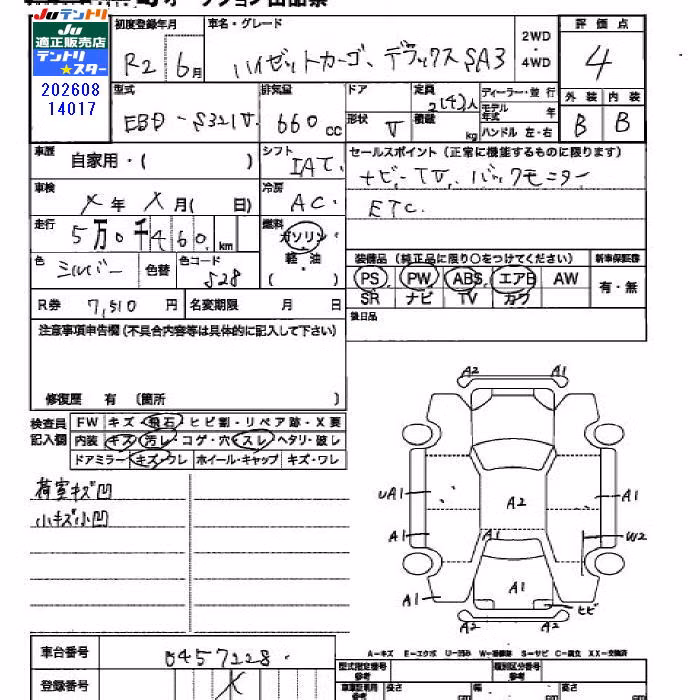 Juテントリ
Ju
適正販売店
テントリ
★スター
202608
14017
初度登録年月
車名・グレード
2WD
・
4WD
評価点
R2 6月
ハイゼットカーゴ、デラックスSA3
4
型式
排気量
ドア
定員
ディーラー・並行
外装 内装
EBD-S321V
660 cc
2(4)人
モデル年式 年
形状 V
積載 kg
ハンドル 左・右
B B
車歴
自家用・( )
シフト
IAT
セールスポイント(正常に機能するものに限ります)
ナビ・TV、バックモニター
ETC.
車検
X年 X月( 日)
冷房
AC
走行
5万0千460 km
燃料
ガソリン
軽・油
( )
色
シルバー
色替
色コード
S28
装備品(純正品に限り○をつけてください)
新車保証書
PS PW ABS エアB AW
有・無
SR ナビ TV カワ
R券 7,510 円
名変期限 月 日
後日品
注意事項申告欄(不具合内容等は具体的に記入して下さい)
修復歴 有 〔箇所 〕
検査員
記入欄
FW キズ・飛石・ヒビ割・リペア跡・X要
内装 キズ・汚レ・コゲ・穴・スレ・ヘタリ・破レ
ドアミラー キズ・ワレ ホイール・キャップ キズ・ワレ
荷室キズ凹
小キズ小凹
A2 A1
UA1
A2
A1
A1
A1
W2
A1
A1
ヒビ
A2 A1
A-キズ E-エクボ U-凹み W-補修跡 S-サビ C-腐食 XX-交換済
車台番号
0457228
登録番号
X
型式指定番号
参考
類別区分番号
参考
車庫証明用
参考
長さ cm
幅 cm
高さ cm